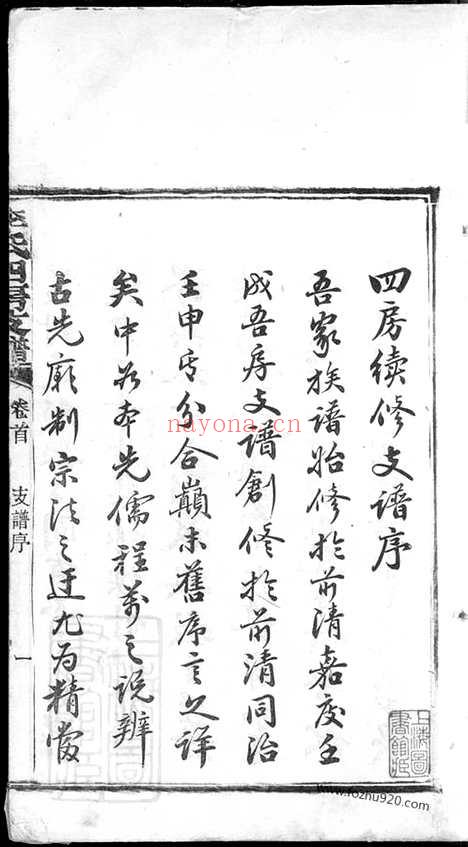 四房續修支譜序
吾家族譜始修於前清嘉慶壬
戌吾房支譜創修於前清同治
壬申其分合巔末舊序言之詳
矣中
本先儒程
之說辨
古先廟制宗法之迂尤為精當
氏四房支譜
卷首
支譜序
一
上海圖
書館
nayona.cn
www.fozhu920.com